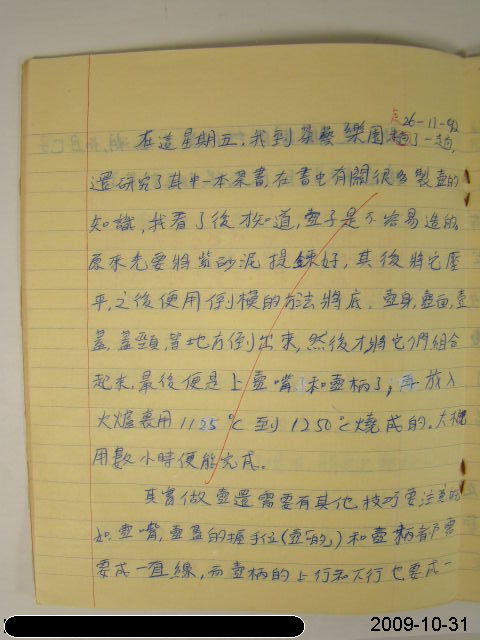 26-11-92
在這星期五,我到茶藝樂園走了一趟,
還研究了其中一本茶書,在書中有關很多製壺的
知識,我看了後才知道,壺子是不容易造的。
原來先要將紫砂泥提鍊好,其後將它壓
平,之後便用倒模的方法將底、壺身,壺面,壺
蓋,蓋頸,等地方倒出來,然後才將它們組合
起來,最後便是上壺嘴和壺柄了,再放入
火爐裏用1125°C到1250°C燒成的。大概
用數小時便能完成。
其實做壺還需要有其他技巧要注意的
如壺嘴,壺蓋的握手位(壺的)和壺柄都需
要成一直線,而壺柄的上行和下行也要成一
2009-10-31